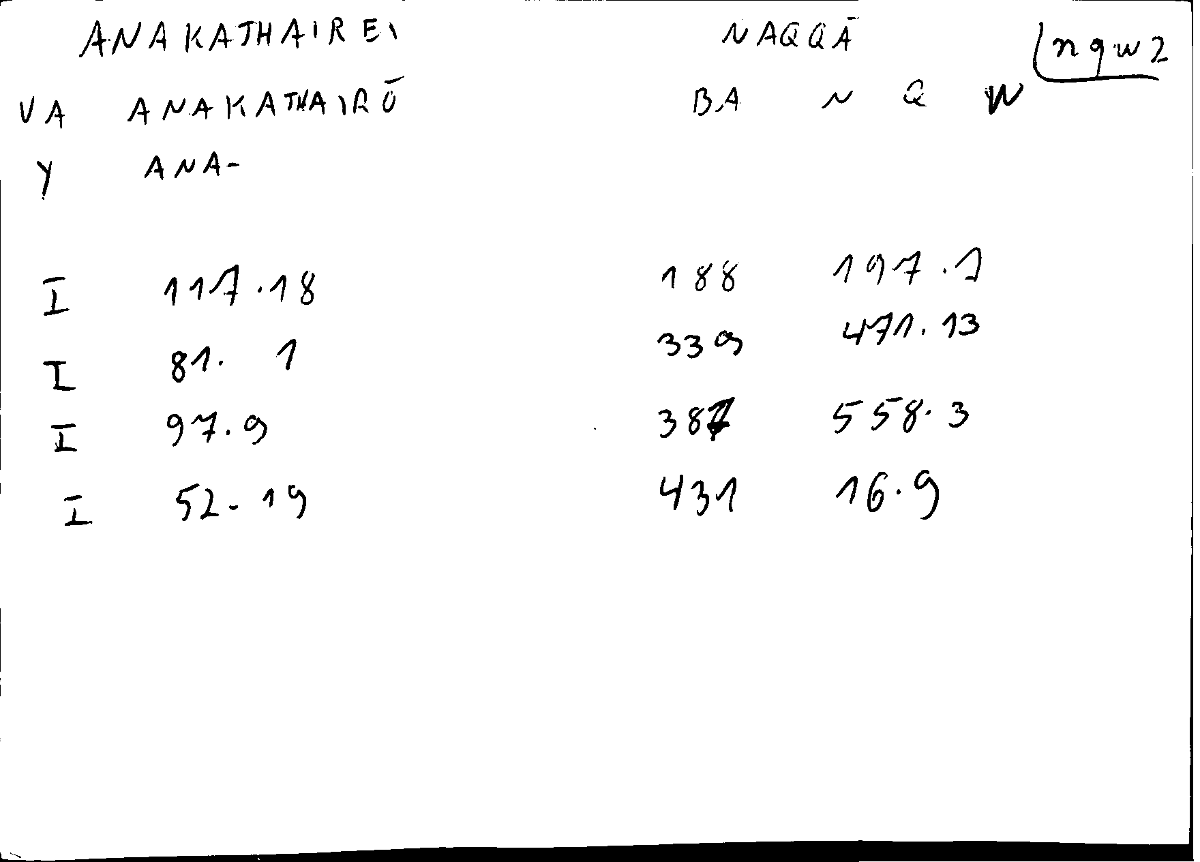 ANAKATHAIREI NAQQĀ nqw2
VA ANAKATHAIRŌ BA N Q W
Y ANA-
I 117.18 188 197.1
I 81. 1 339 471.13
I 97.9 387 558.3
I 52.19 431 16.9